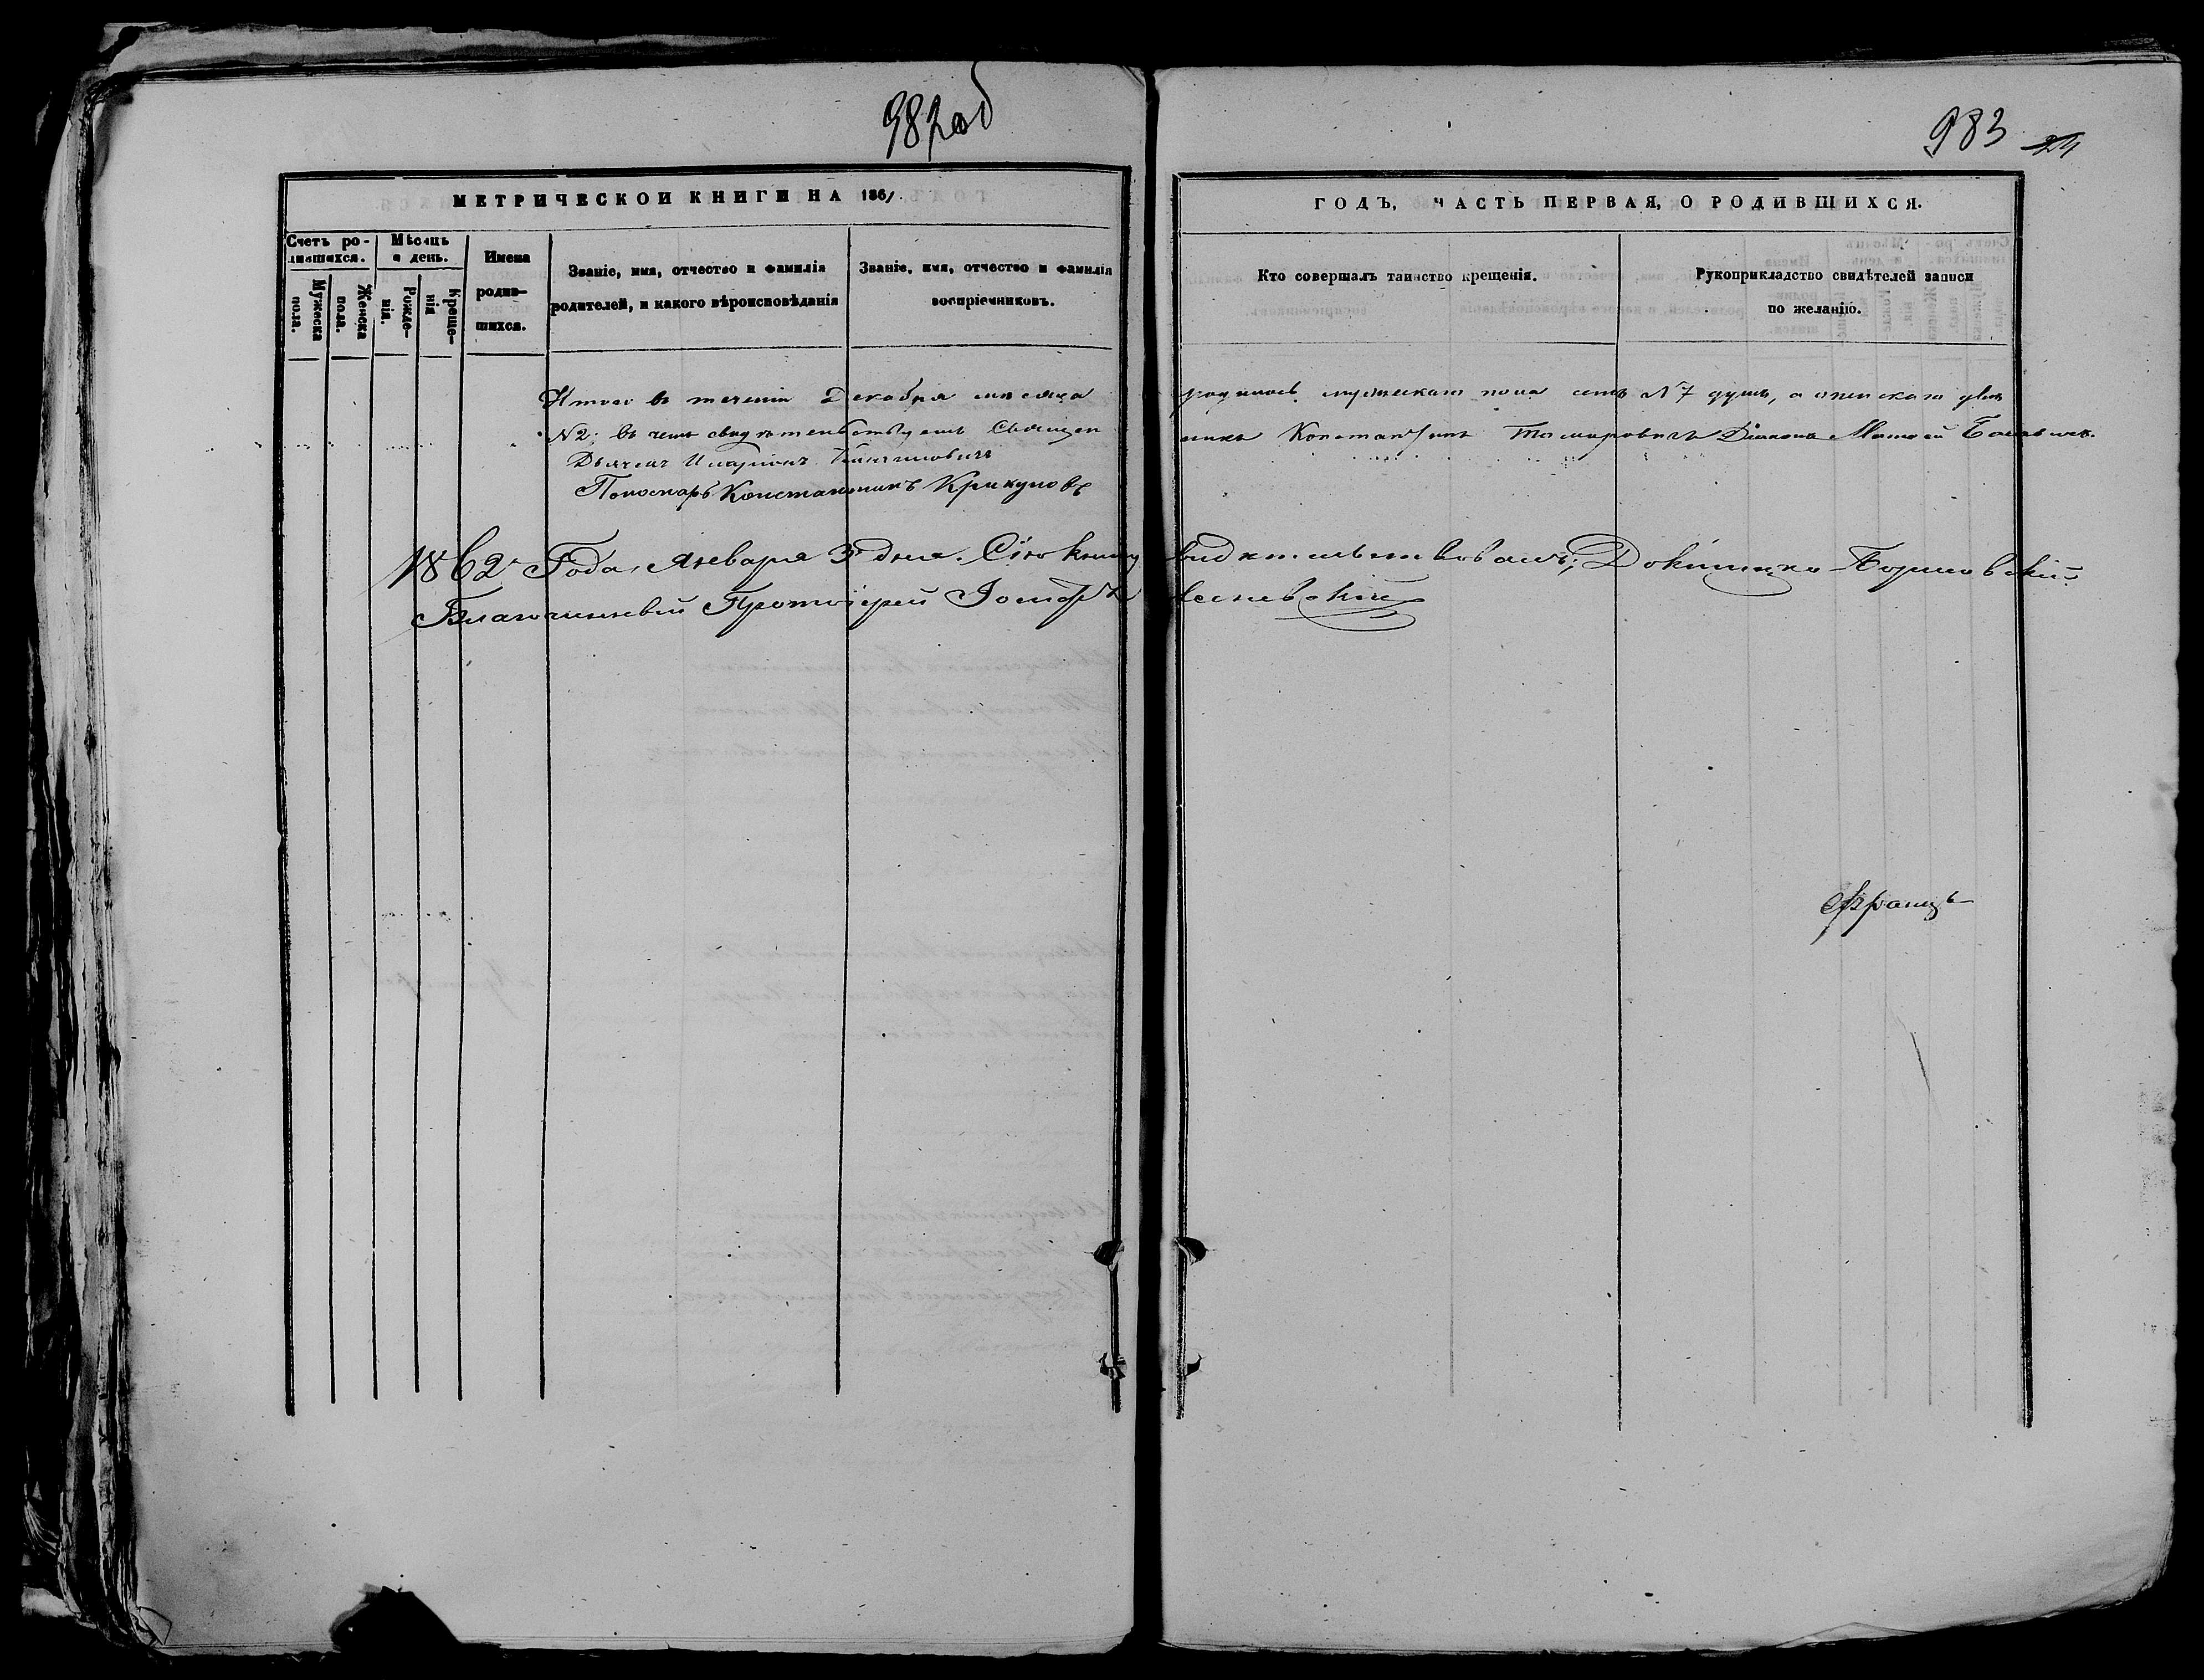 982об
983 24
МЕТРИЧЕСКОЙ КНИГИ НА 1861
ГОДЪ, ЧАСТЬ ПЕРВАЯ, О РОДИВШИХСЯ.
Счетъ ро-
дившихся.
Мужеска
пола.
Женска
пола.
Мѣсяцъ
и день.
Рожде-
нія.
Креще-
нія
Имена
родив-
шихся.
Званіе, имя, отчество и фамилія
родителей, и какого вѣроисповѣданія
Званіе, имя, отчество и фамилія
воспріемниковъ.
Кто совершалъ таинство крещенія.
Рукоприкладство свидѣтелей записи
по желанію.
Итого въ теченіи Декабря мѣсяца родилось мужескаго пола семь №7 душъ, а женскаго двѣ
№2; въ чемъ свидѣтельствуемъ Священникъ Константинъ Діаконъ Матѳей
Дьячекъ Иларіонъ
Пономарь Константинъ Крикуновъ
1862 Года, Января 3 дня. Сію книгу свидѣтельствовалъ;
Благочинный Протоіерей Іосифъ
Францъ